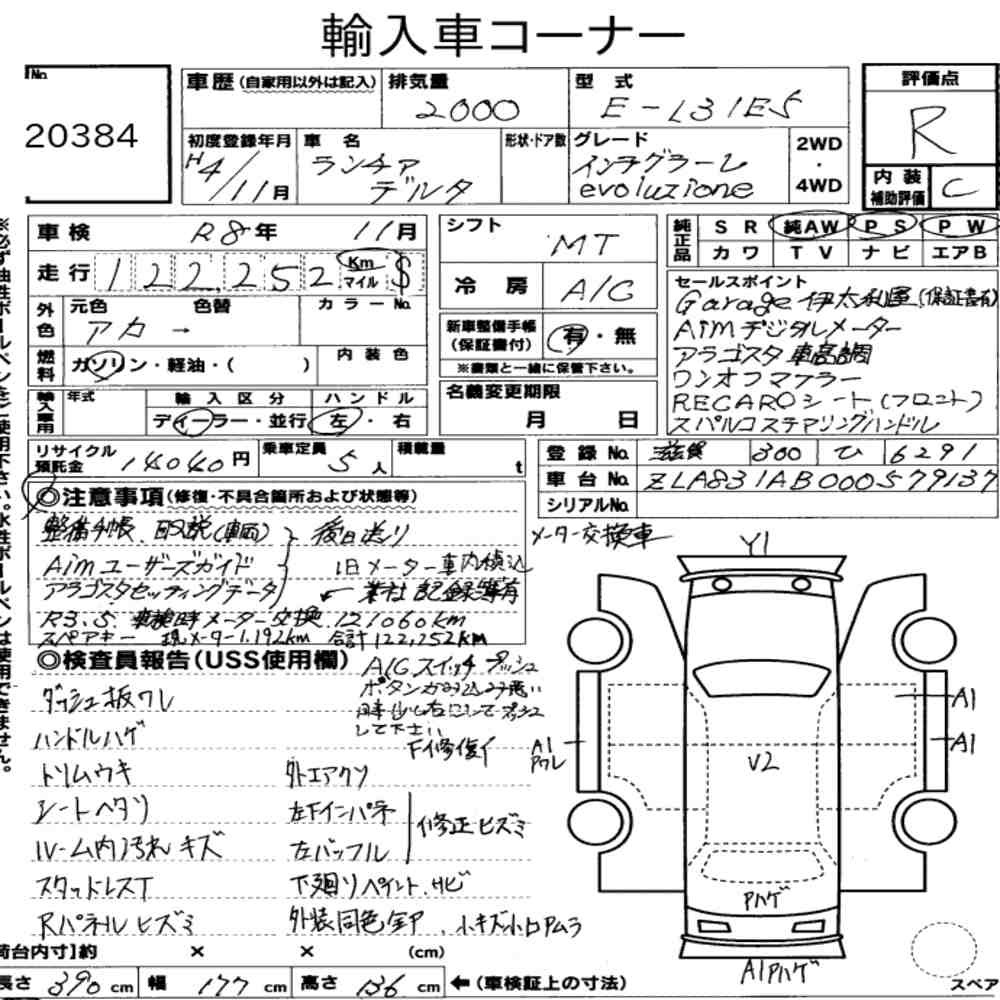 輸入車コーナー
No.
20384
車歴(自家用以外は記入)
排気量
2000
型式
E-L31E5
評価点
R
初度登録年月
H4/11月
車名
ランチア
デルタ
形状・ドア数
グレード
インテグラーレ
evoluzione
2WD
・
4WD
内装
補助評価
C
車検 R8年 11月
走行 122,252 Km マイル $
外色
元色 色替 カラーNo.
アカ →
燃料
ガソリン・軽油・( )
内装色
輸入車用
年式
輸入区分
ハンドル
ディーラー・並行
左・右
シフト
MT
冷房
A/C
新車整備手帳
(保証書付)
有・無
※書類と一緒に保管下さい。
名義変更期限
月 日
純正品
SR 純AW PS PW
カワ TV ナビ エアB
セールスポイント
Garage伊太利屋(保証書有)
Aimデジタルメーター
アラゴスタ 車高調
ワンオフマフラー
RECAROシート(フロント)
スパルコステアリングハンドル
リサイクル
預託金
14040円
乗車定員
5人
積載量
t
登録No. 滋賀 300 ひ 6291
車台No. ZLA831AB000579137
シリアルNo.
◎注意事項(修復・不具合箇所および状態等)
整備手帳、取説(車両)
後日送り
Aimユーザーズガイド
旧メーター車内積込
アラゴスタセッティングデータ
← 業社記録簿有
R3.5 車検時メーター交換 121060km
スペアキー 現メーター1,192km 合計122,252km
メーター交換車
◎検査員報告(USS使用欄)
A/Cスイッチ プッシュ
ボタンがめり込み悪い
して下さい
ダッシュ板ワレ
ハンドルハゲ
下イ修復イ
トリムウキ
外エアクリ
シートヘタリ
左Fインパネ
修正ヒズミ
ルーム内汚れキズ
左バッフル
スタッドレスT
下廻りペイント、サビ
Rパネルヒズミ
外装同色全P
小キズ小凹アムラ
Y1
A1
A1
A1
Pワレ
V2
Pハゲ
A1Pハゲ
スペア
荷台内寸】約 × × (cm)
長さ 390 cm 幅 177 cm 高さ 136 cm ←(車検証上の寸法)
※必ず油性ボールペンをご使用下さい。水性ボールペンは使用できません。